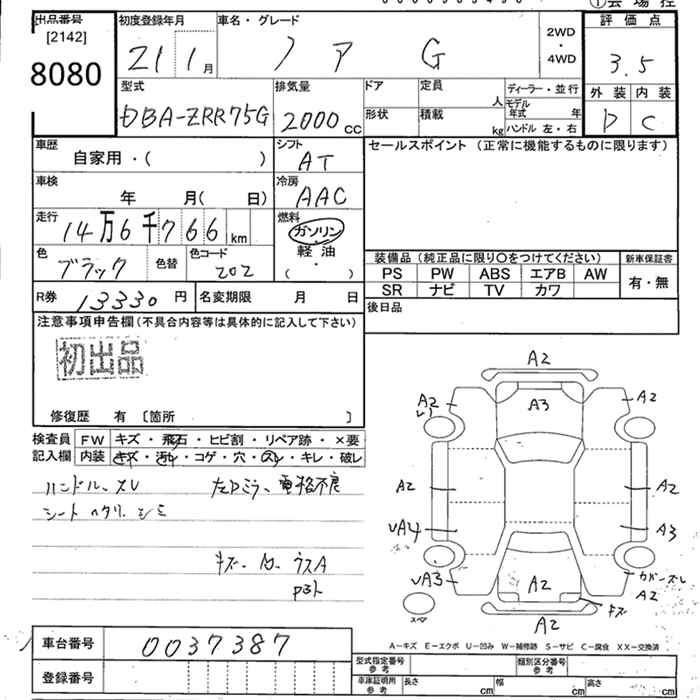 ①会場控
出品番号
[2142]
8080
初度登録年月
21 1月
車名・グレード
ノア G
2WD
・
4WD
評価点
3.5
外装 内装
D C
型式
DBA-ZRR75G
排気量
2000cc
ドア
形状
定員
人
積載
kg
ディーラー・並行
モデル年式 年
ハンドル 左・右
車歴
自家用・( )
シフト
AT
車検
年 月( 日)
冷房
AAC
走行
14万6千766km
燃料
ガソリン
・
軽油
・
( )
色
ブラック
色替
色コード
202
R券 13330円
名変期限 月 日
セールスポイント(正常に機能するものに限ります)
装備品(純正品に限り○をつけてください) 新車保証書
PS PW ABS エアB AW
SR ナビ TV カワ
有・無
後日品
注意事項申告欄(不具合内容等は具体的に記入して下さい)
初出品
修復歴 有〔箇所 〕
検査員 FW キズ・飛石・ヒビ割・リペア跡・×要
記入欄 内装 キズ・汚レ・コゲ・穴・スレ・キレ・破レ
ハンドル、スレ 左Dミラー電格不良
シート
キズ、凹、ウスA
A2
A2
A3
A2
A2
A2
vA4
A3
vA3
A2
カバースレ
A2
キズ
A2
スペア
A-キズ E-エクボ U-凹み W-補修跡 S-サビ C-腐食 XX-交換済
車台番号 0037387
登録番号
型式指定番号
参考
類別区分番号
参考
車庫証明用
参考
長さ cm 幅 cm 高さ cm